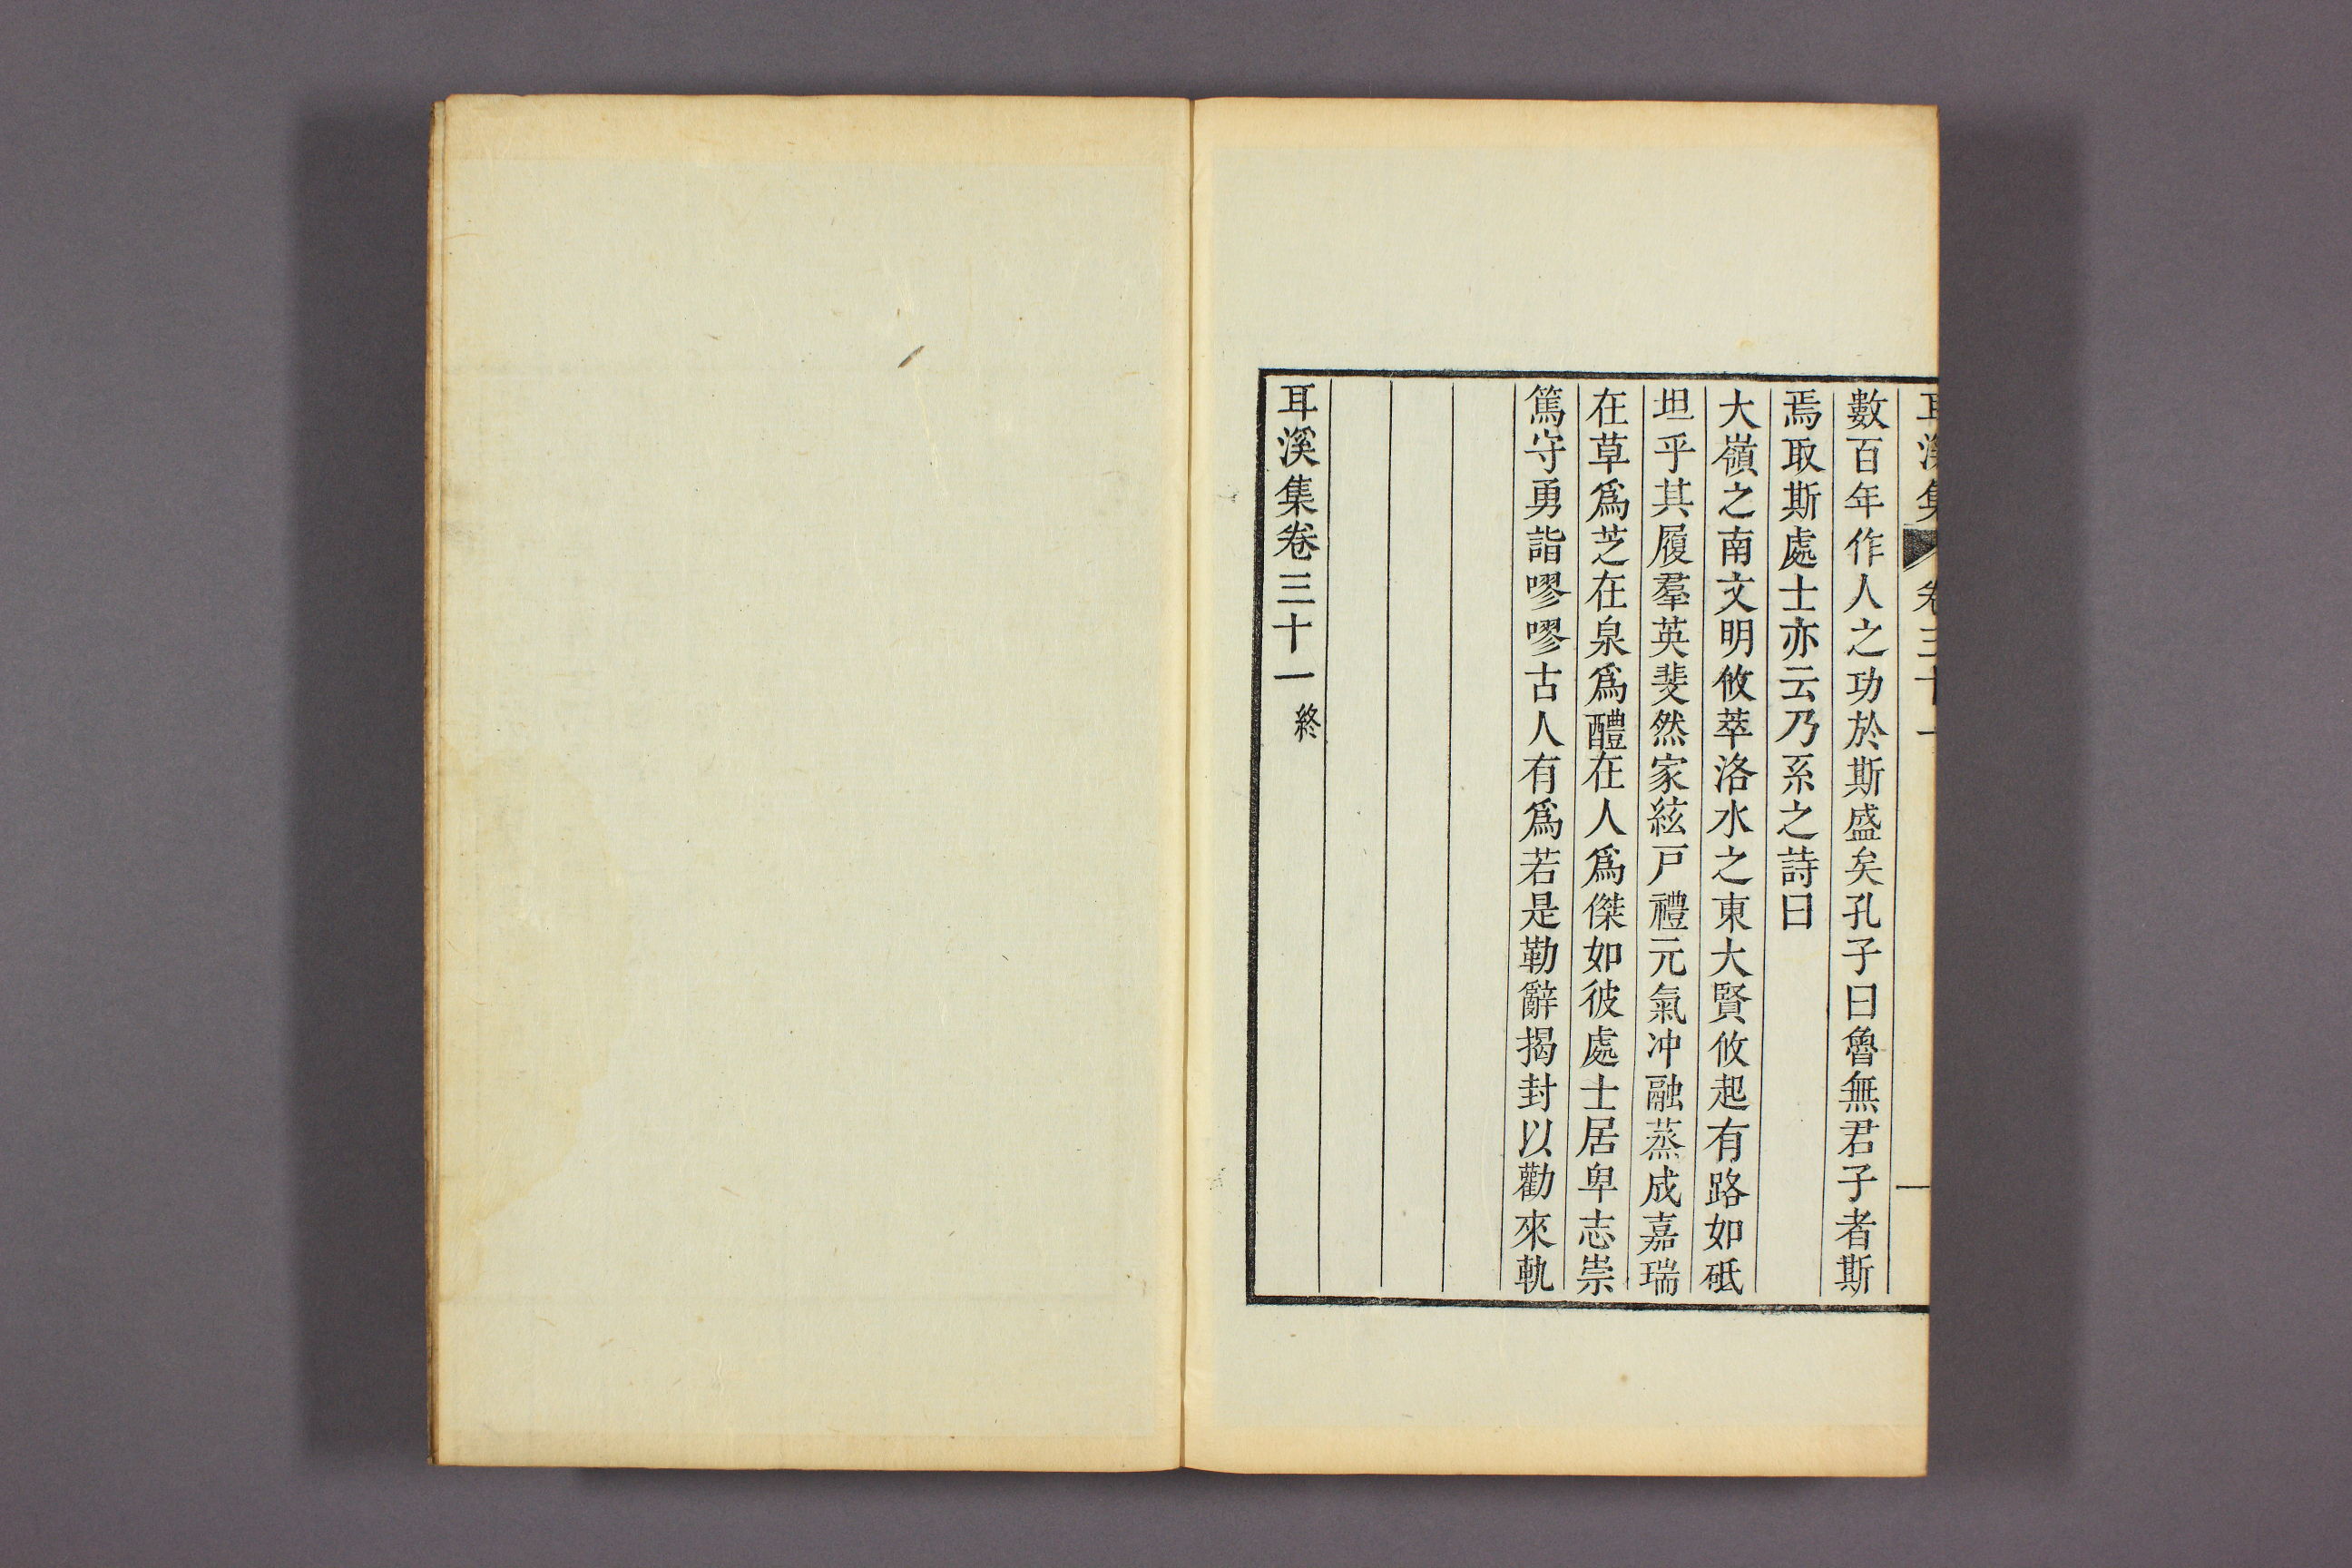 耳溪集 卷三十一 一
數百年作人之功於斯盛矣孔子曰魯無君子者斯
焉取斯處士亦云乃系之詩曰
大嶺之南文明攸萃洛水之東大賢攸起有路如砥
坦乎其履羣英斐然家絃戶禮元氣冲融蒸成嘉瑞
在草爲芝在泉爲醴在人爲傑如彼處士居卑志崇
篤守勇詣嘐嘐古人有爲若是勒辭揭封以勸來軌
耳溪集卷三十一 終